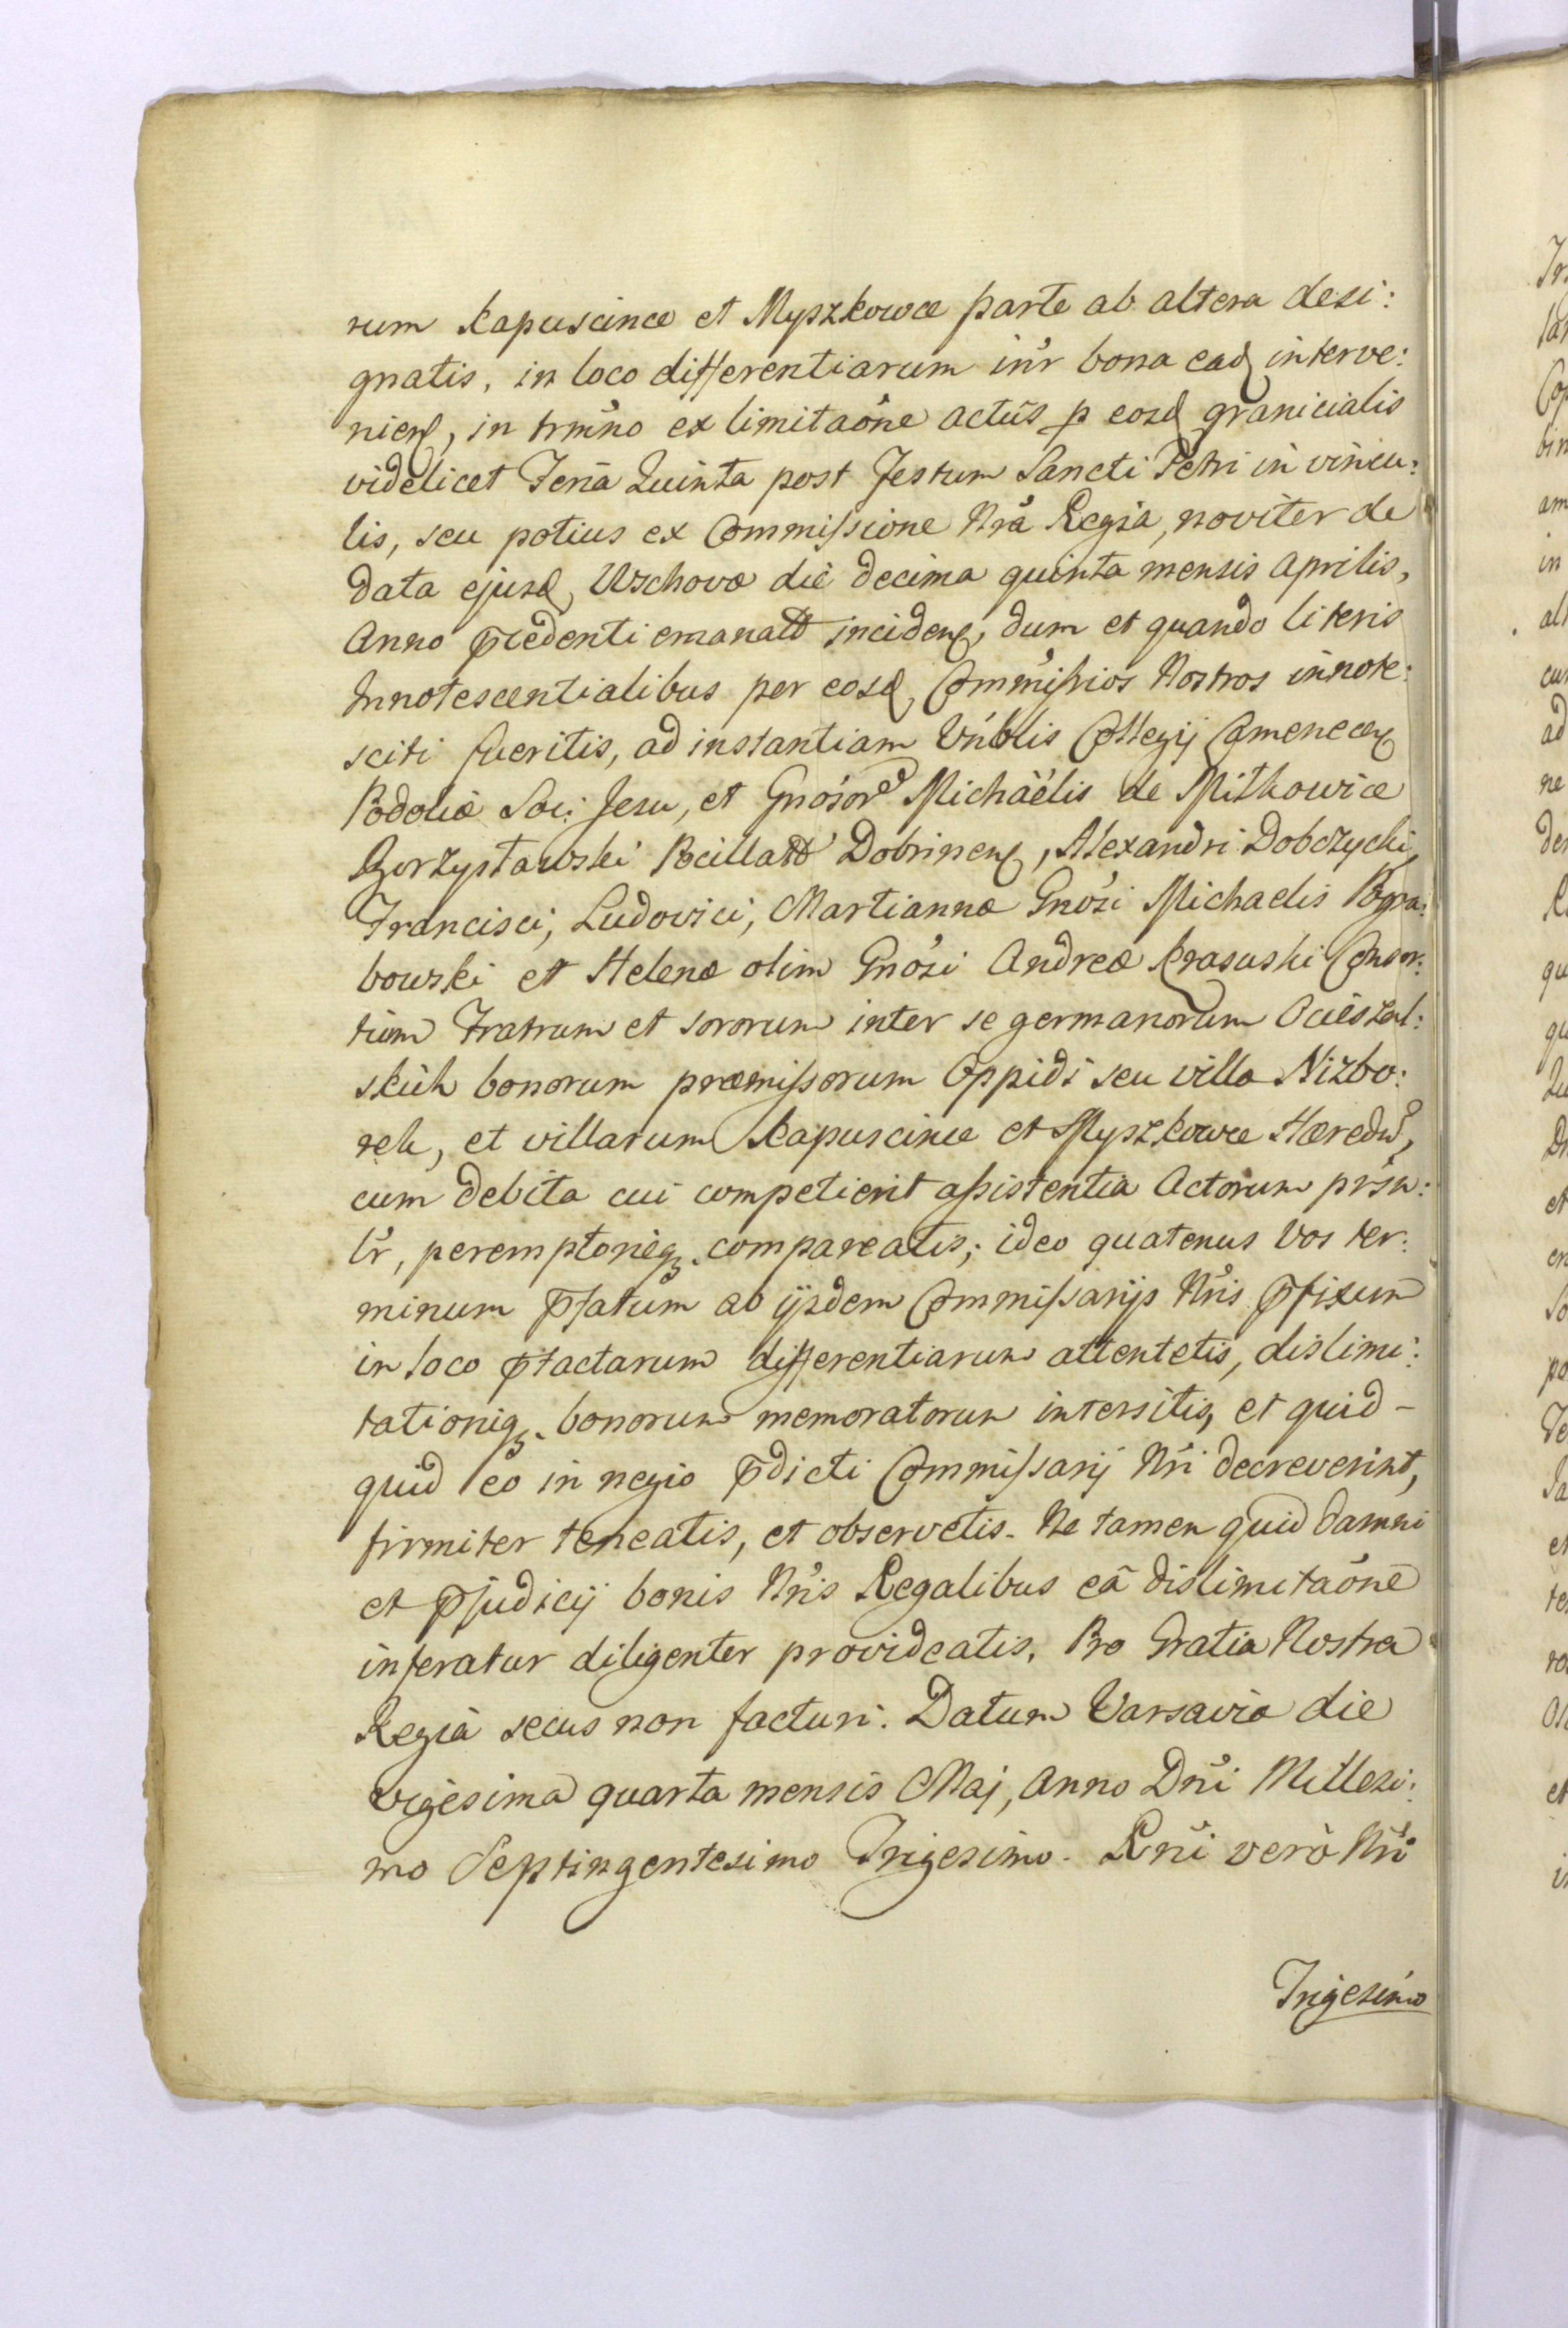 rum Kapuscince et Myszkowce parte ab altera desi:
gnatis, in loco differentiarum inr̃ bona ead. interve:
nien, in trm̃no ex limitaõne actus p eosd. granicialis
videlicet Feria Quinta post Festum Sancti Petri in vincu:
lis, seu potius ex Commissione Nrã Regia, noviter de
data ejusd. Wschovæ die decima quinta mensis Aprilis,
Anno p̃cedenti emanatt inciden, dum et quando literis
Innotescentialibus per eosd. Commissrios Nostros innote:
sciti fueritis, ad instantiam Vnb̃lis Collegij Camenecen
Podoliæ Soc: Jesu, et Gnõsor Michaëlis de Mitkowice
Borzysławski Pocillatt Dobrinen, Alexandri Dobczycki,
Francisci, Ludovici, Martiannæ Gnõsi Michaelis Pogra:
bowski et Helenæ olim Gnõsi Andreæ Krasuski Consor:
tium Fratrum et sororum inter se germanorum Ocieszal:
skich bonorum præmissorum Oppidi seu villæ Nizbo:
rek, et villarum Kapuscince et Myszkowce Hæredũ,
cum debita cui competierit assistentia Actorum prsñ:
lr̃, peremptorieq. compareatis; ideo quatenus Vos ter:
minum p̃fatum ab ijsdem Commissarijs Nrĩs p̃fixum
in loco p̃tactarum differentiarum attentetis, dislimi:
tationiq. bonorum memoratorum intersitis, et quid-
quid eo in negio p̃dicti Commissarij Nrĩ decreverint,
firmiter teneatis, et observetis. Ne tamen quid damni
et p̃judicij bonis Nrĩs Regalibus eâ dislimitaõne
inferatur diligenter provideatis. Pro Gratia Nostra
Regia secus non facturi. Datum Varsaviæ die
vigesima quarta mensis Maj, Anno Dnĩ Millesi:
mo Septingentesimo Trigesimo. Rnĩ verò Nrĩ
Trigesimo